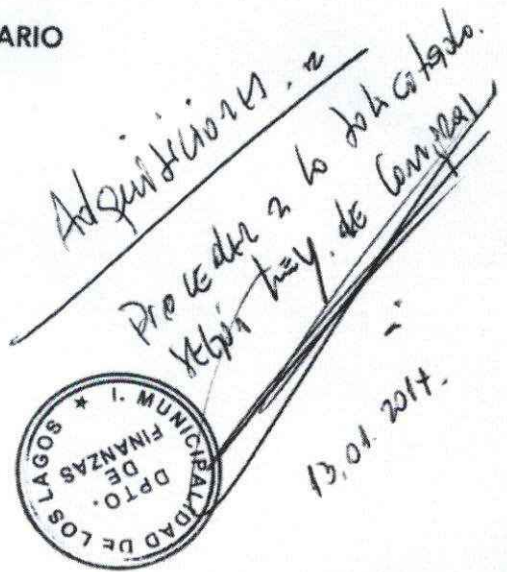 ARIO
Adquisiciones.
Proceder a lo solicitado.
según Ley. de Compras
13.01.2017.
I. MUNICIPALIDAD DE LOS LAGOS ★
DPTO.
DE
FINANZAS